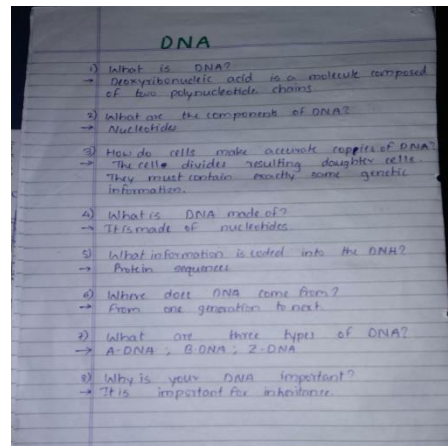 DNA
1) What is DNA?
→ Deoxyribonucleic acid is a molecule composed
of two polynucleotide chains
2) What are the components of DNA?
→ Nucleotides
3) How do cells make accurate coppies of DNA?
→ The cells divides resulting daughter cells.
They must contain exactly same genetic
information.
4) What is DNA made of?
→ It is made of nucleotides.
5) What information is coded into the DNA?
→ Protein sequences
6) Where does DNA come from?
→ From one generation to next.
7) What are three types of DNA?
→ A-DNA ; B-DNA ; Z-DNA
8) Why is your DNA important?
→ It is important for inheritance.